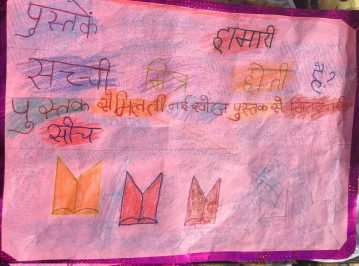 पुस्तकें हामारी
सच्ची मित्र होती हैं?
पुस्तक से मिलती नई खोज पुस्तक से मिलती नई
सौच